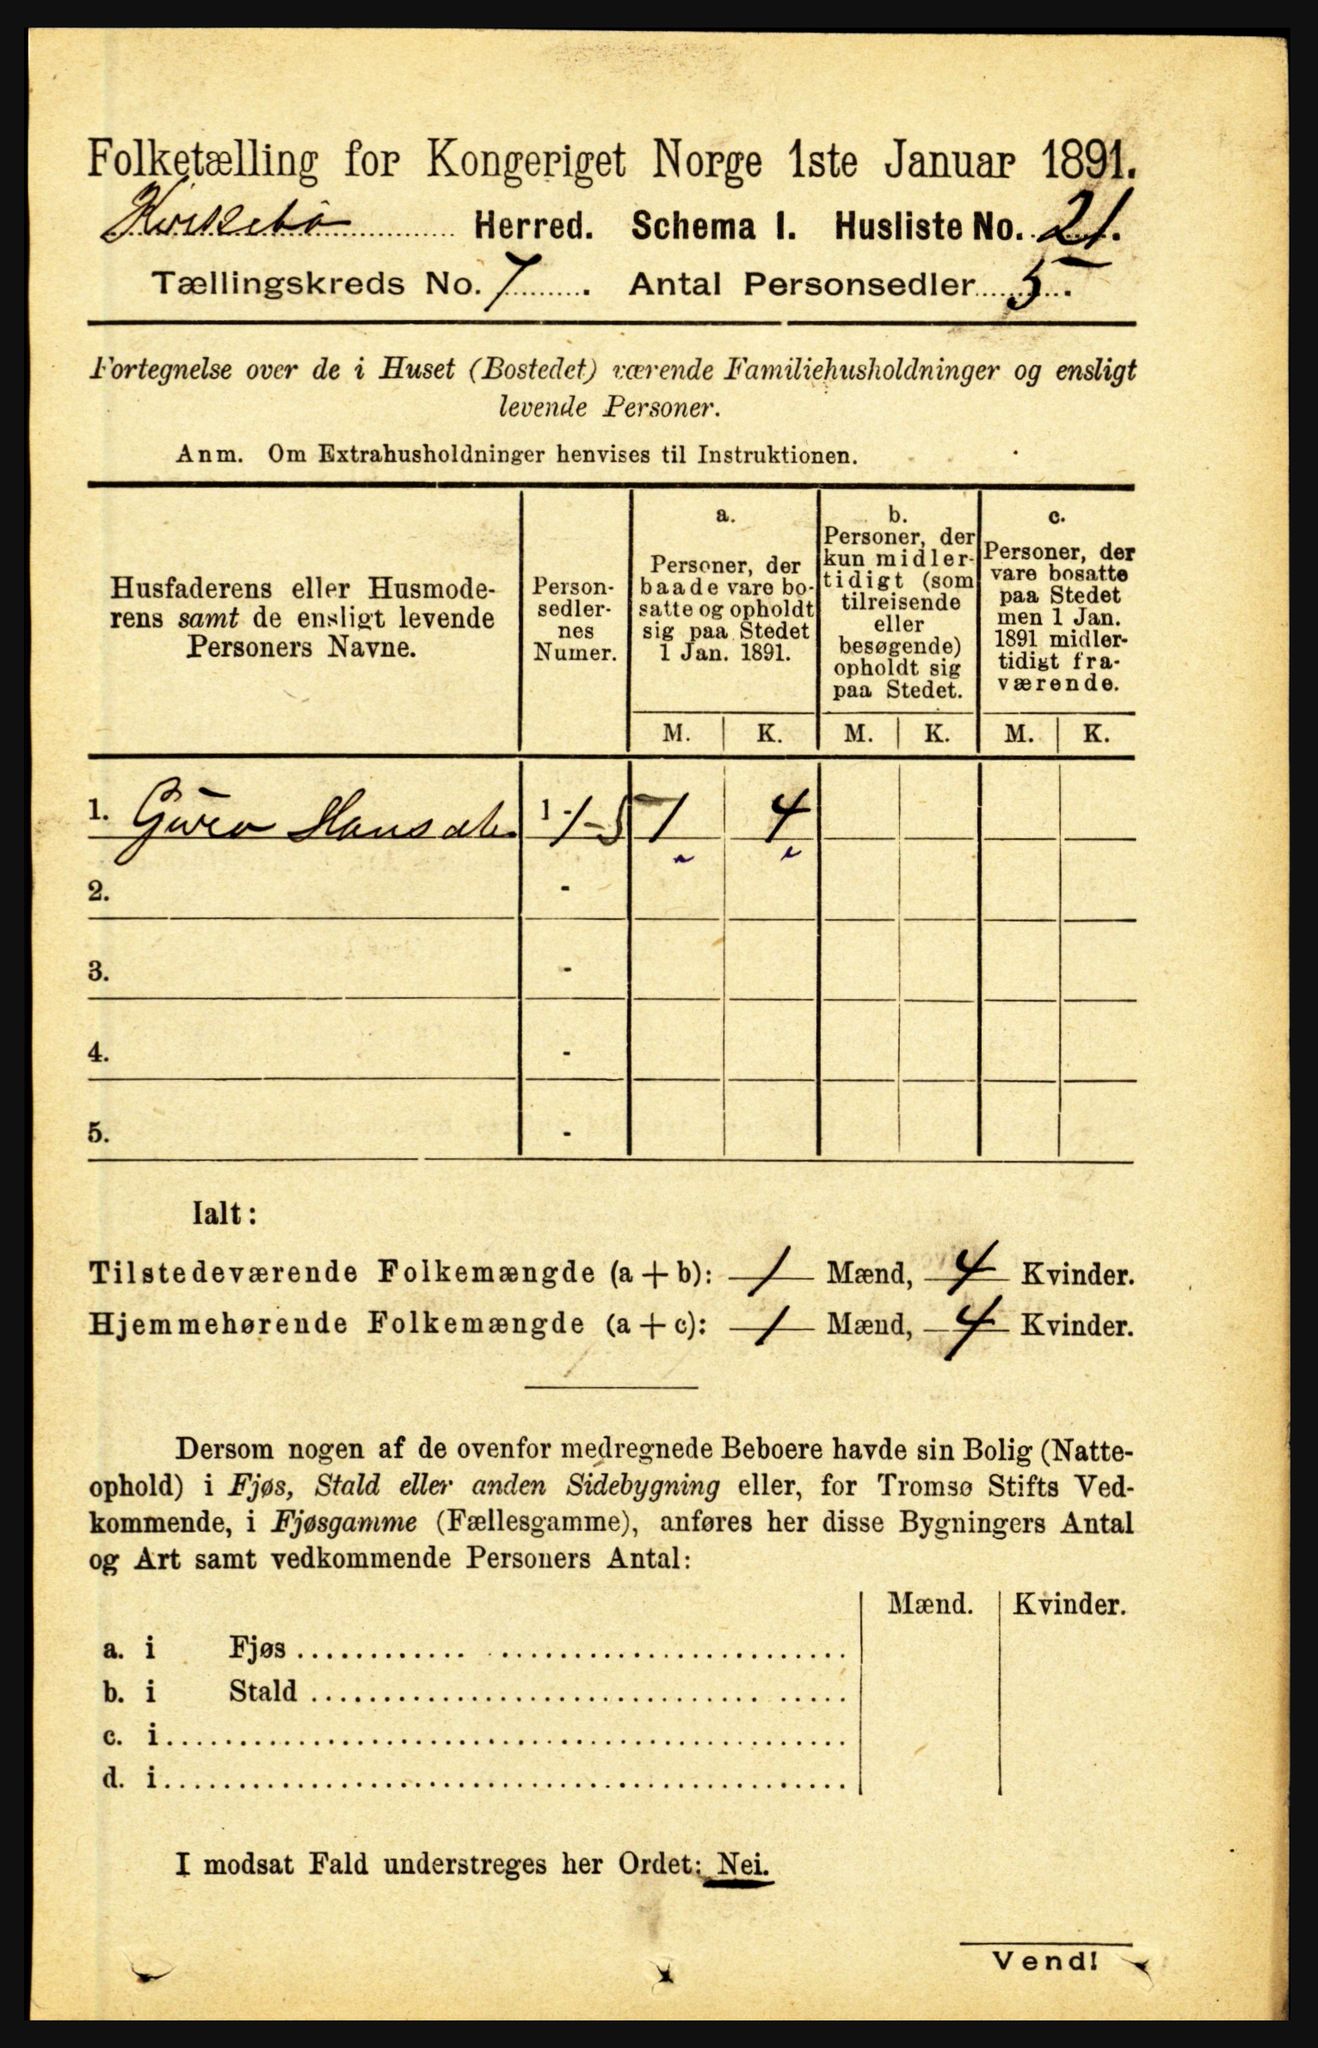 Folketælling for Kongeriget Norge 1ste Januar 1891.
Kirkebø Herred. Schema I. Husliste No. 21.
Tællingskreds No. 7. Antal Personsedler 5.
Fortegnelse over de i Huset (Bostedet) værende Familiehusholdninger og ensligt
levende Personer.
Anm. Om Extrahusholdninger henvises til Instruktionen.
Husfaderens eller Husmode-
rens samt de ensligt levende
Personers Navne.
Person-
sedler-
nes
Numer.
a.
Personer, der
baade vare bo-
satte og opholdt
sig paa Stedet
1 Jan. 1891.
b.
Personer, der
kun midler-
tidigt (som
tilreisende
eller
besøgende)
opholdt sig
paa Stedet.
c.
Personer, der
vare bosatte
paa Stedet
men 1 Jan.
1891 midler-
tidigt fra-
værende.
M. K. M. K. M. K.
1. Guro Hansdtr 1 - 1-5 1 4
2. -
3. -
4. -
5. -
Ialt:
Tilstedeværende Folkemængde (a + b): 1 Mænd, 4 Kvinder.
Hjemmehørende Folkemængde (a + c): 1 Mænd, 4 Kvinder.
Dersom nogen af de ovenfor medregnede Beboere havde sin Bolig (Natte-
ophold) i Fjøs, Stald eller anden Sidebygning eller, for Tromsø Stifts Ved-
kommende, i Fjøsgamme (Fællesgamme), anføres her disse Bygningers Antal
og Art samt vedkommende Personers Antal:
Mænd. Kvinder.
a. i Fjøs
b. i Stald
c. i
d. i
I modsat Fald understreges her Ordet: Nei.
Vend!